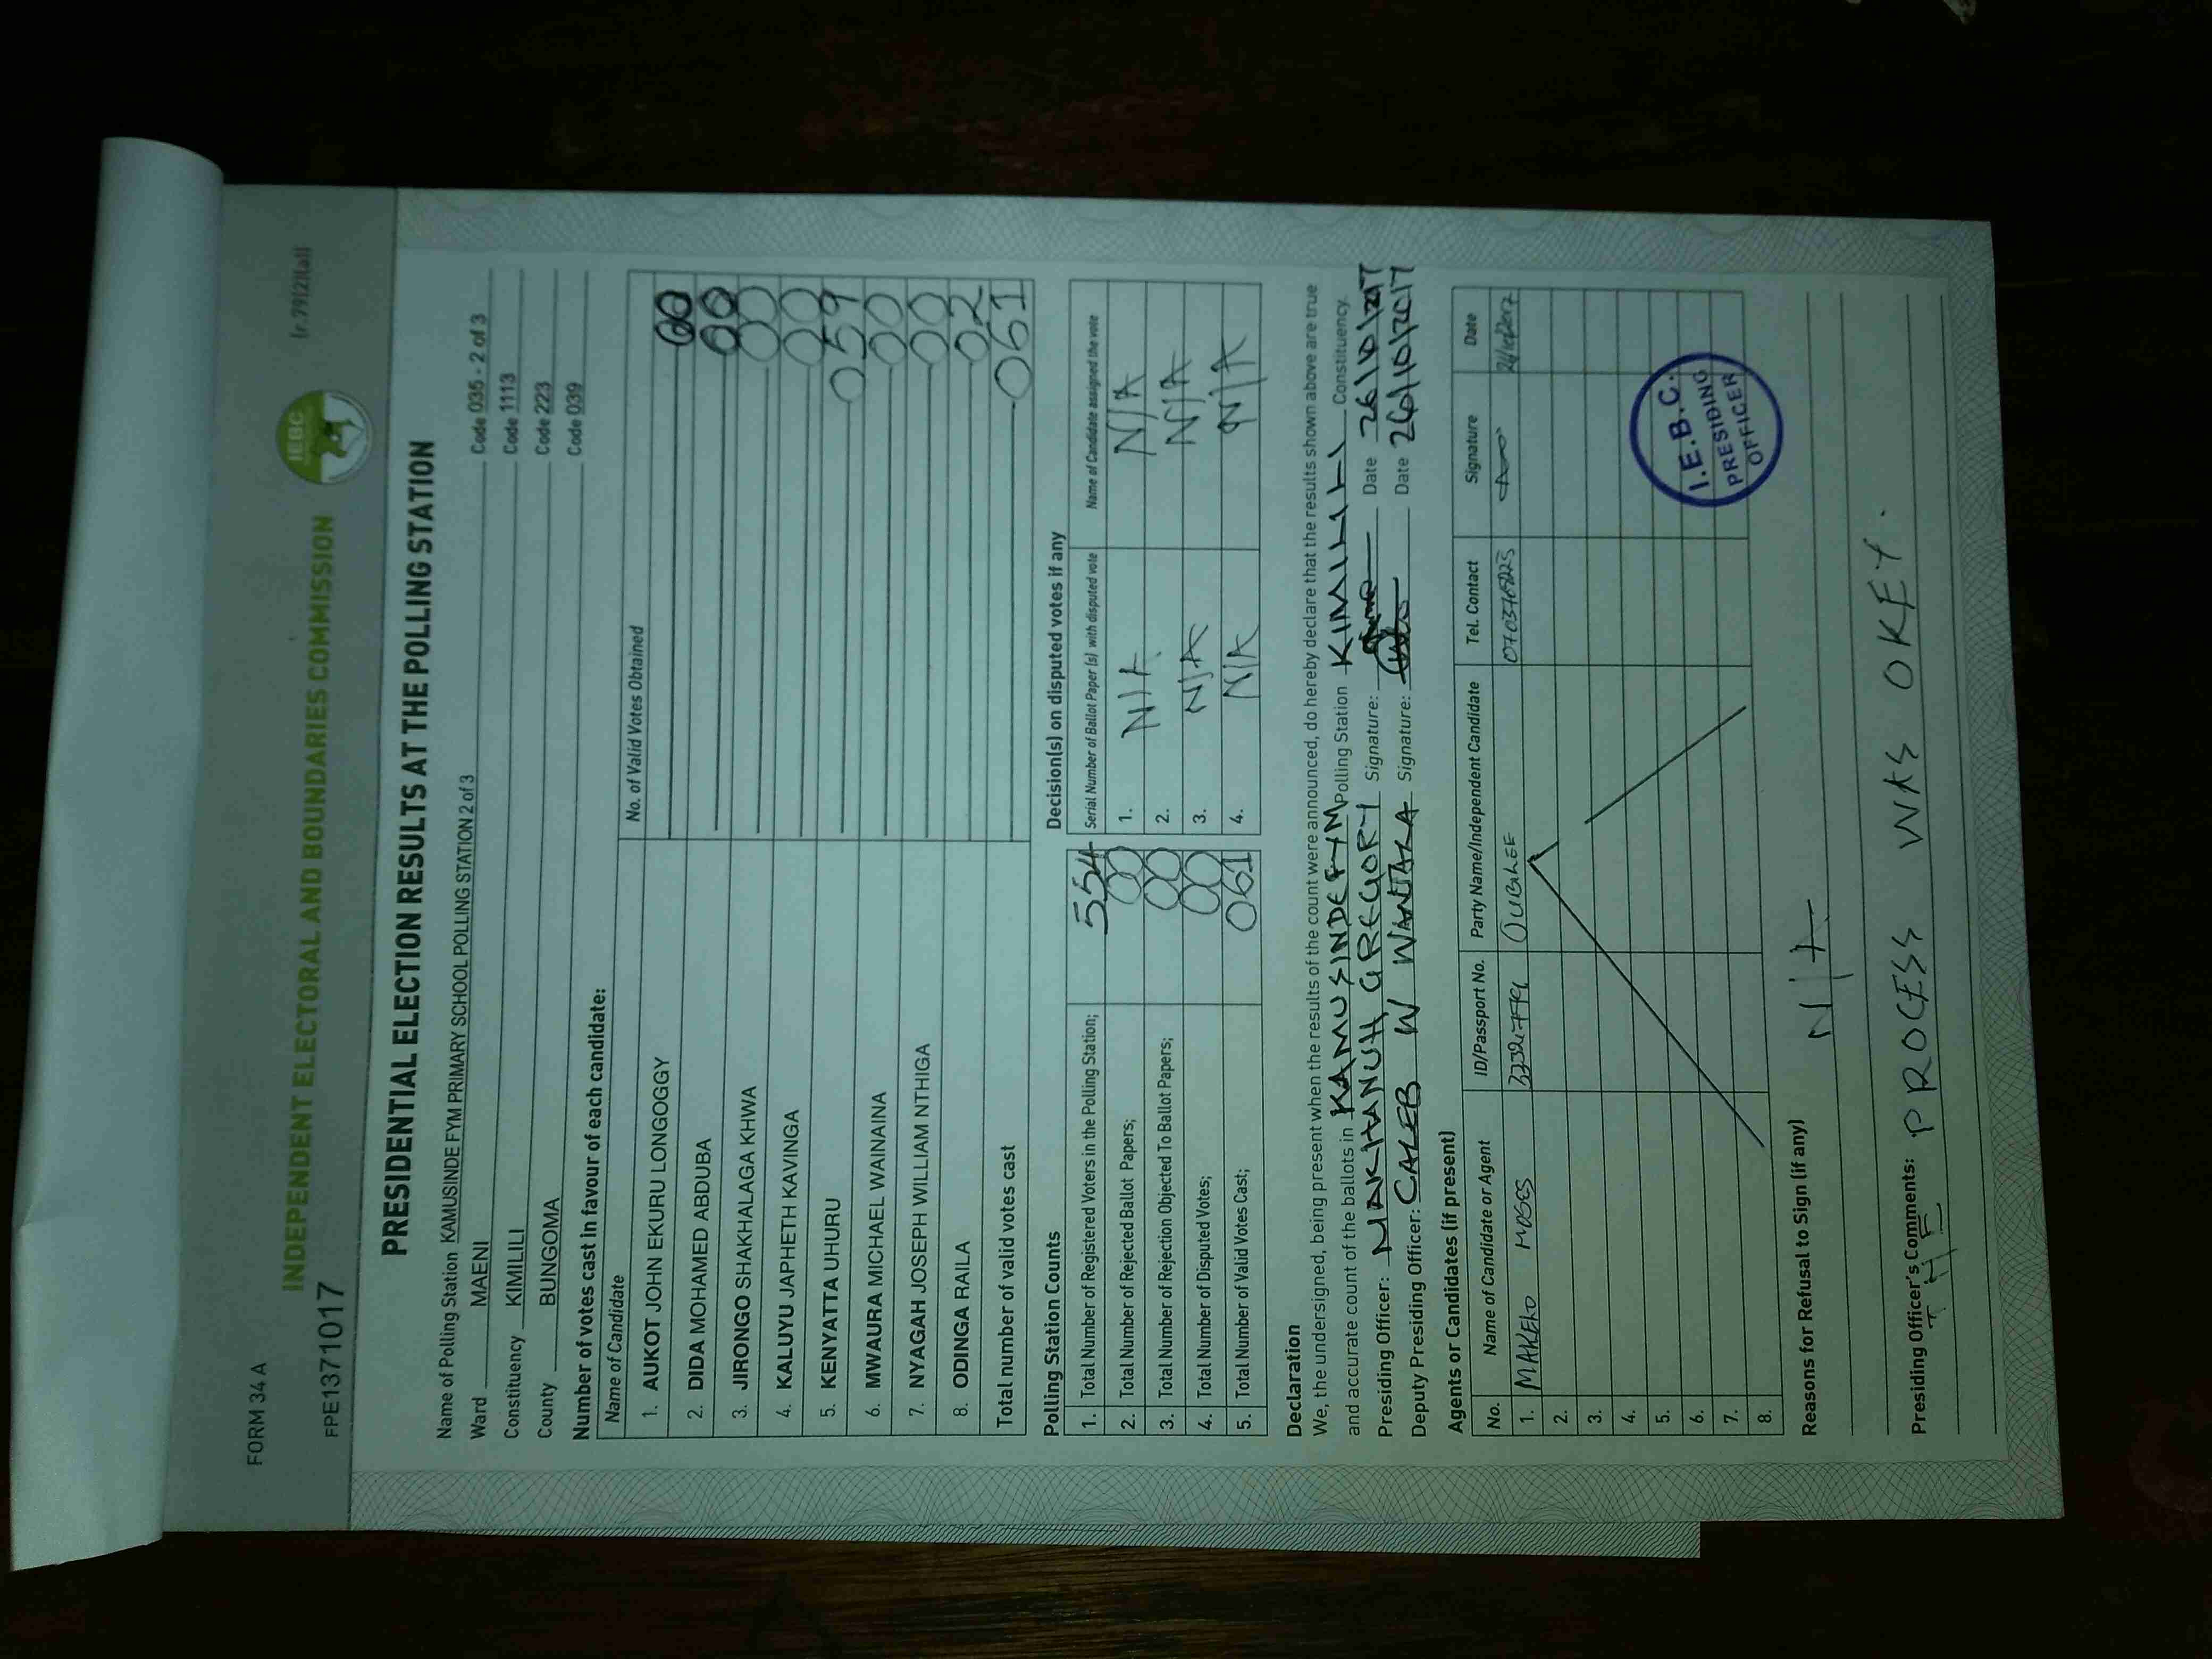 FORM 34 A
(r.79(2)(a))
INDEPENDENT ELECTORAL AND BOUNDARIES COMMISSION
IEBC
FPE1371017
PRESIDENTIAL ELECTION RESULTS AT THE POLLING STATION
Name of Polling Station KAMUSINDE FYM PRIMARY SCHOOL POLLING STATION 2 of 3 Code 035 - 2 of 3
Ward MAENI Code 1113
Constituency KIMILILI Code 223
County BUNGOMA Code 039
Number of votes cast in favour of each candidate:
Name of Candidate No. of Valid Votes Obtained
1. AUKOT JOHN EKURU LONGOGGY 00
2. DIDA MOHAMED ABDUBA 00
3. JIRONGO SHAKHALAGA KHWA 00
4. KALUYU JAPHETH KAVINGA 00
5. KENYATTA UHURU 059
6. MWAURA MICHAEL WAINAINA 00
7. NYAGAH JOSEPH WILLIAM NTHIGA 00
8. ODINGA RAILA 02
Total number of valid votes cast 061
Polling Station Counts
1. Total Number of Registered Voters in the Polling Station; 554
2. Total Number of Rejected Ballot Papers; 00
3. Total Number of Rejection Objected To Ballot Papers; 00
4. Total Number of Disputed Votes; 00
5. Total Number of Valid Votes Cast; 061
Decision(s) on disputed votes if any
Serial Number of Ballot Paper (s) with disputed vote Name of Candidate assigned the vote
1. N/A N/A
2. N/A
3. N/A
4. N/A N/A
Declaration
We, the undersigned, being present when the results of the count were announced, do hereby declare that the results shown above are true
and accurate count of the ballots in KAMUSINDE FYM Polling Station KIMILILI Constituency.
Presiding Officer: GREGORY Signature: Date 26/10/2017
Deputy Presiding Officer: CALEB W Signature: Date 26/10/2017
Agents or Candidates (if present)
No. Name of Candidate or Agent ID/Passport No. Party Name/Independent Candidate Tel. Contact Signature Date
1. MOSES
2.
3.
4.
5.
6.
7.
8.
I.E.B.C.
PRESIDING
OFFICER
Reasons for Refusal to Sign (if any)
N/A
Presiding Officer's Comments: PROCESS WAS OKEY.
THE